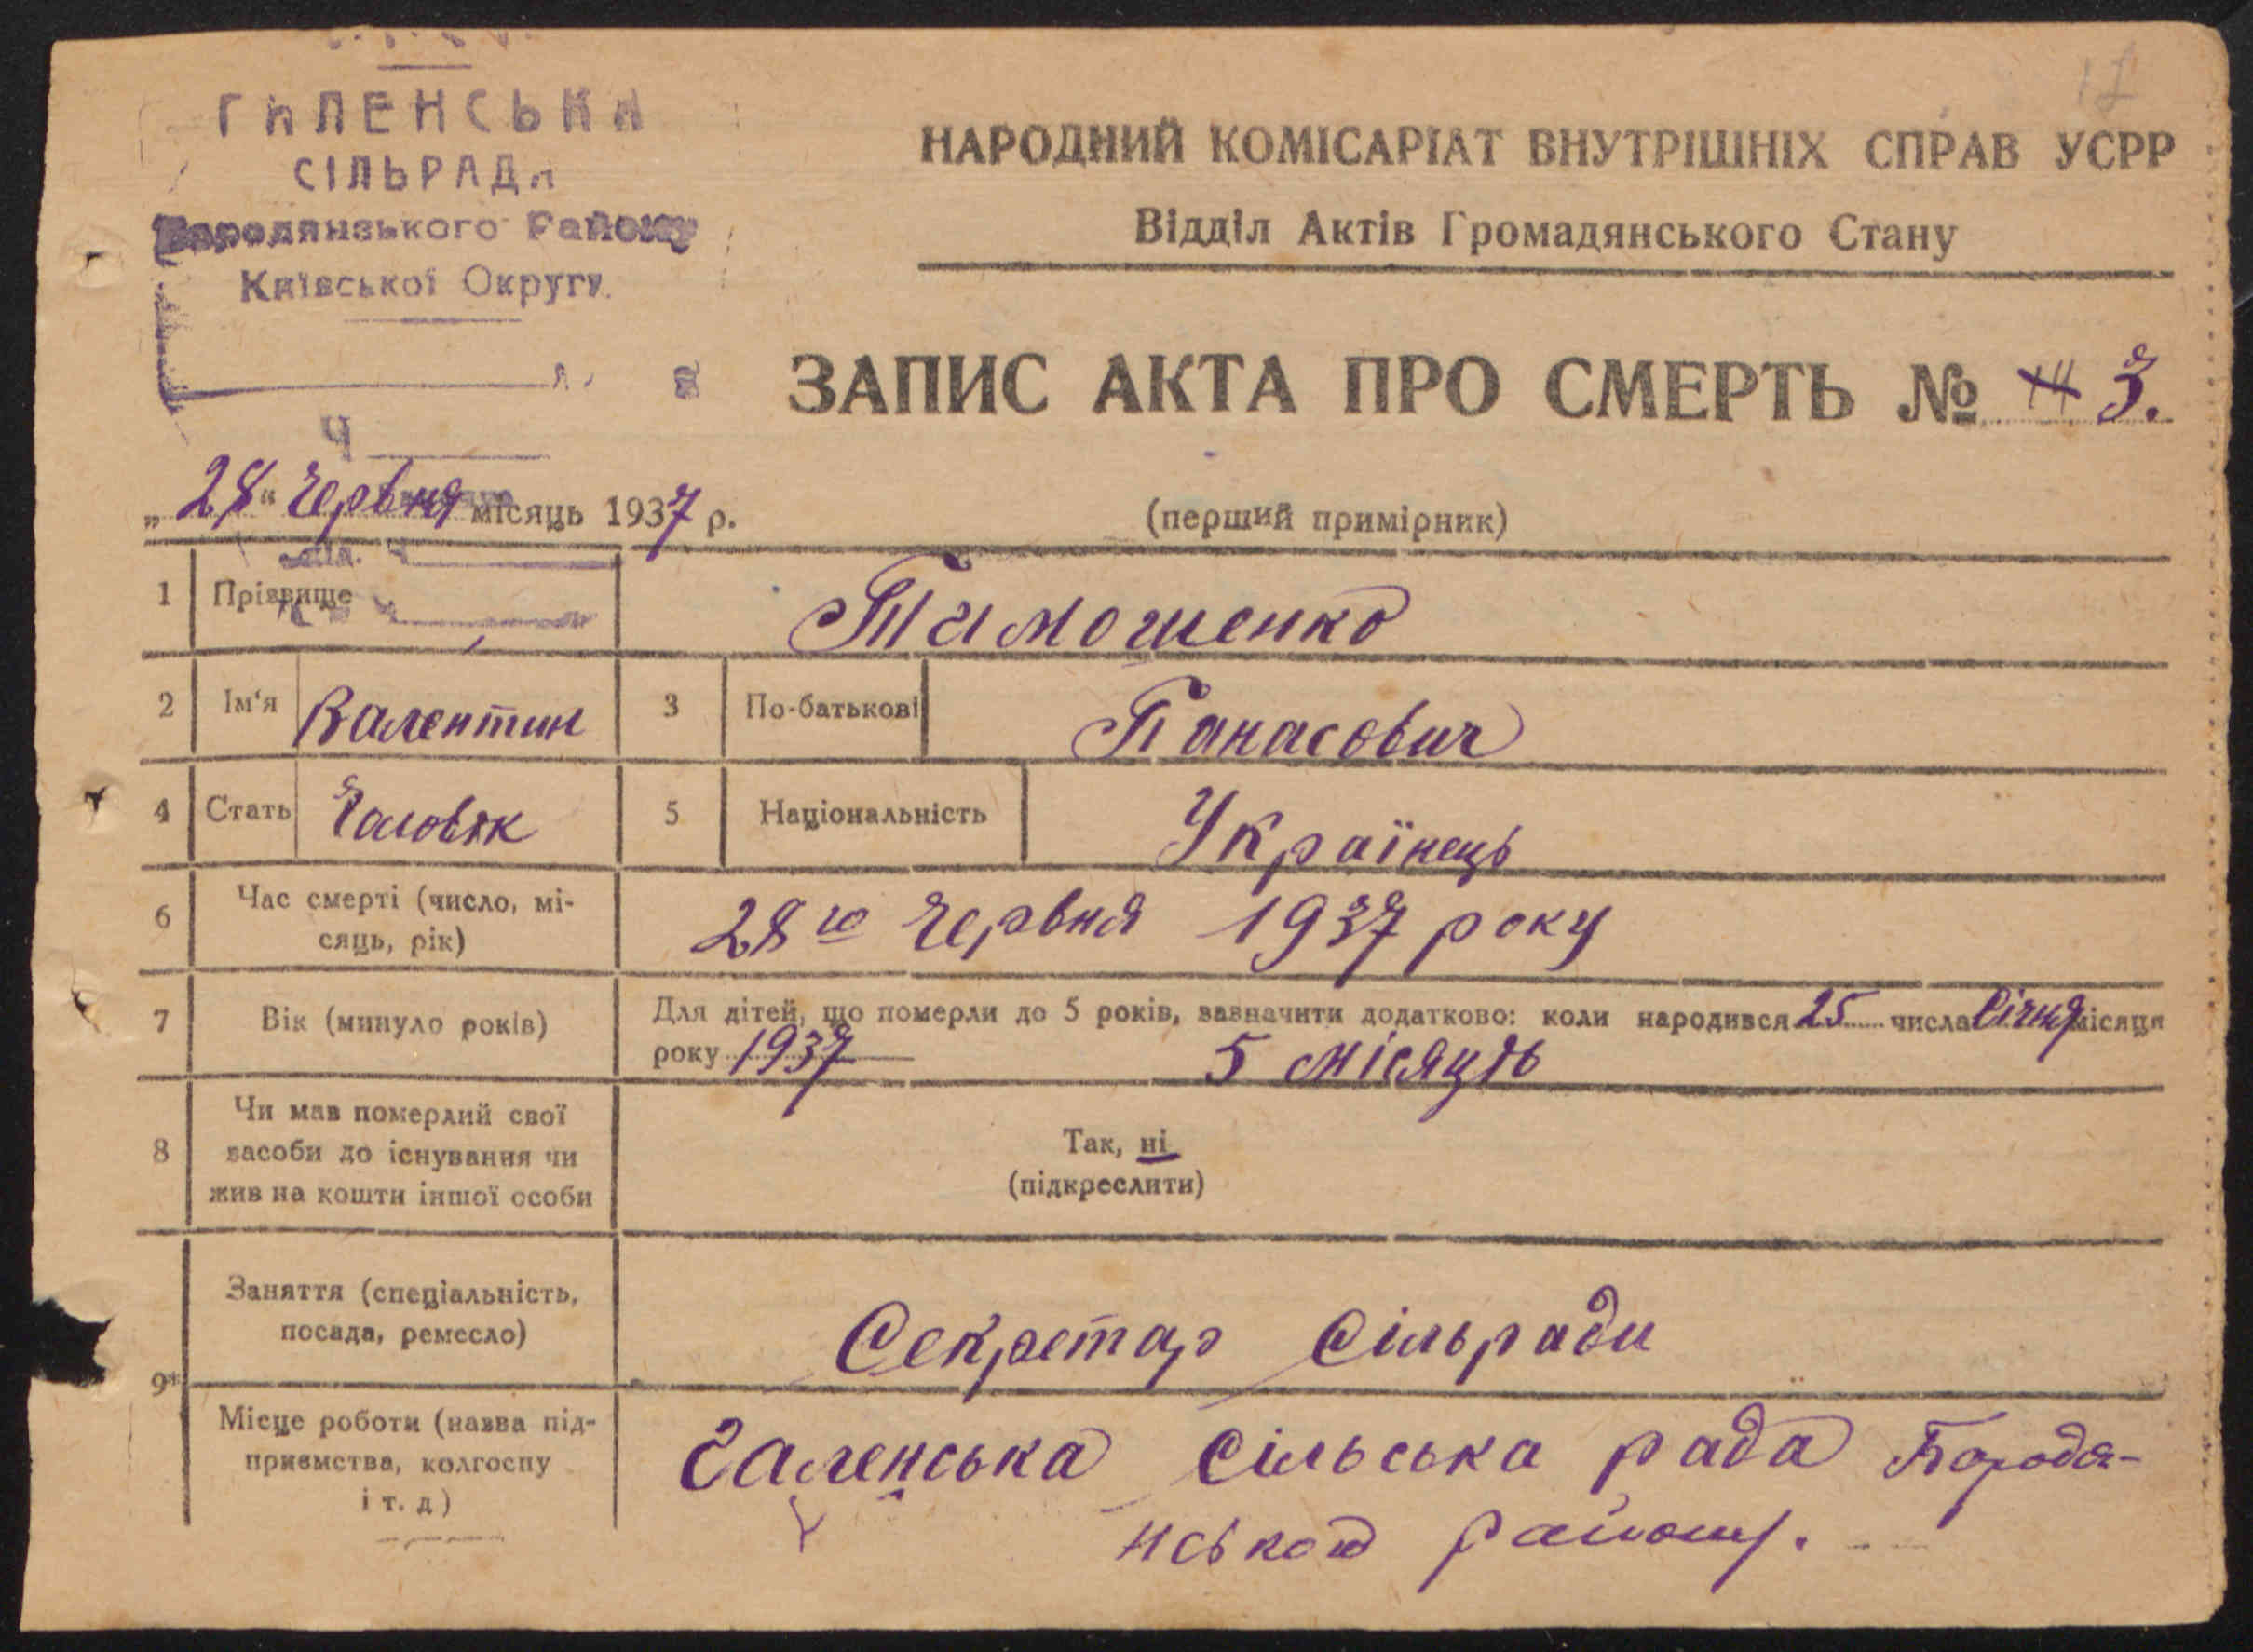 17
ГАЛЕНСЬКА
СІЛЬРАДА
Бородянського Району
Київської Округи
НАРОДНИЙ КОМІСАРІАТ ВНУТРІШНІХ СПРАВ УСРР
Відділ Актів Громадянського Стану
ЗАПИС АКТА ПРО СМЕРТЬ № 3.
„28“ Червня місяць 1937 р.
(перший примірник)
1 Прізвище Тимошенко
2 Ім‘я Валентин 3 По-батькові Панасович
4 Стать Чоловік 5 Національність Українець
6 Час смерті (число, мі-
сяць, рік) 28го Червня 1937 року
7 Вік (минуло років) Для дітей, що померли до 5 років, зазначити додатково: коли народився 25 числа Січня місяця
року 1937 5 місяців
8 Чи мав померлий свої
засоби до існування чи
жив на кошти іншої особи
Так, ні
(підкреслити)
9* Заняття (спеціальність,
посада, ремесло) Секретар Сільради
Місце роботи (назва під-
приємства, колгоспу
і т. д)
Галенська Сільська рада Бородя-
нського району.